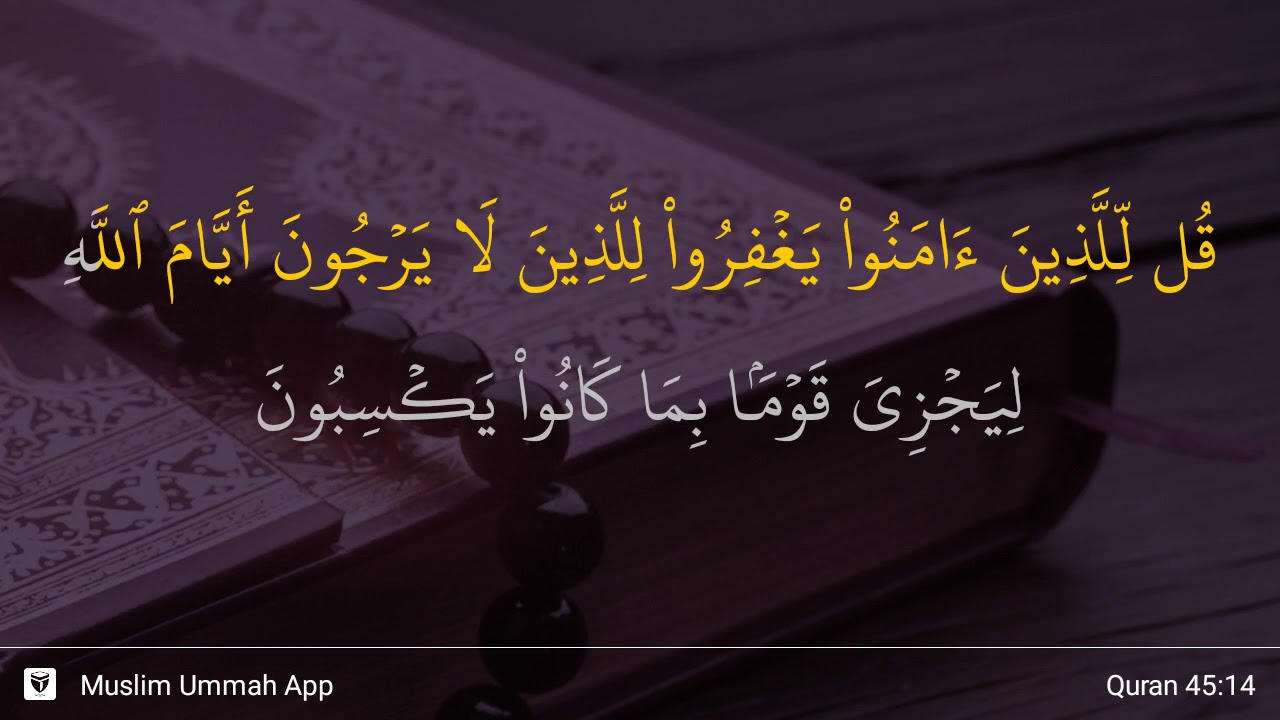 قُل لِّلَّذِينَ ءَامَنُوا۟ يَغْفِرُوا۟ لِلَّذِينَ لَا يَرْجُونَ أَيَّامَ ٱللَّهِ
لِيَجْزِىَ قَوْمًۢا بِمَا كَانُوا۟ يَكْسِبُونَ
Muslim Ummah App
Quran 45:14